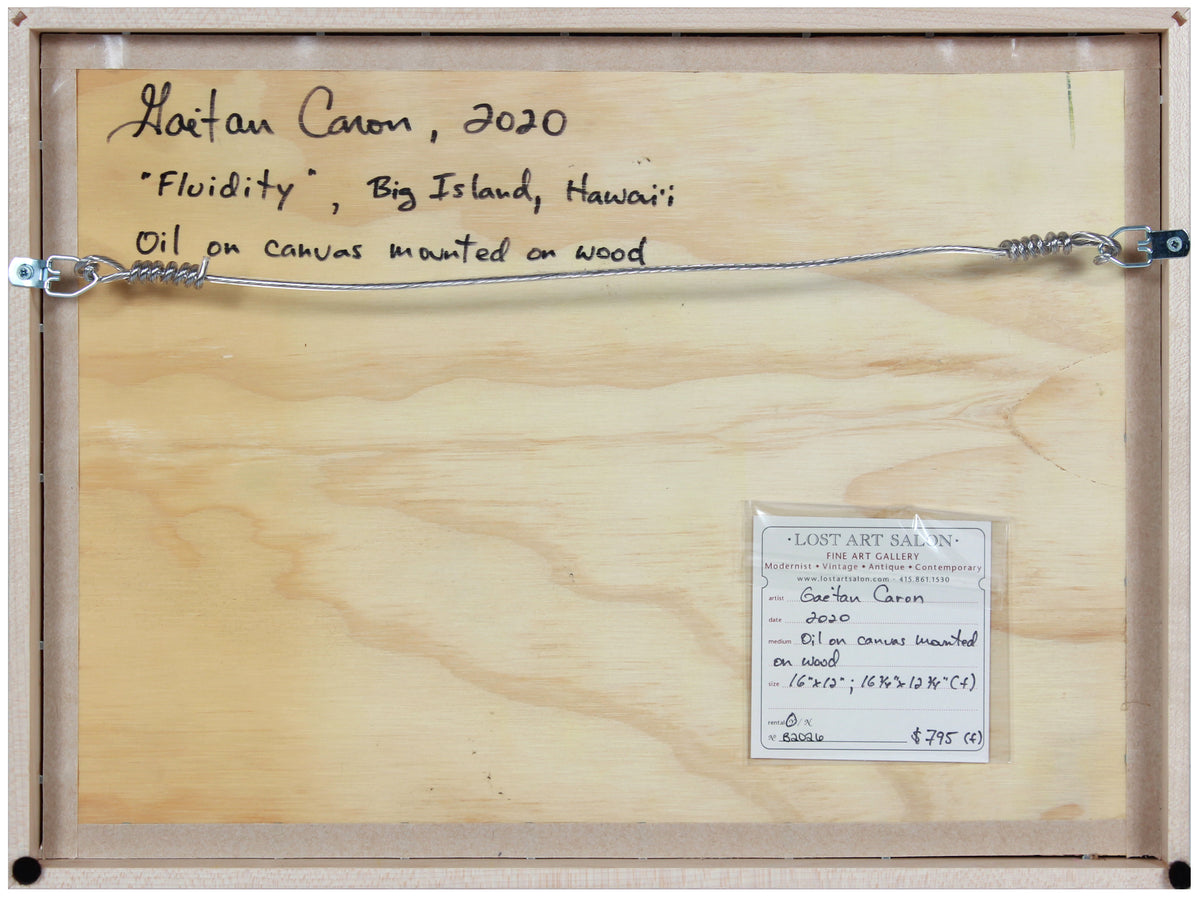 Gaétan Caron, 2020
"Fluidity", Big Island, Hawai'i
Oil on canvas mounted on wood
·LOST ART SALON·
FINE ART GALLERY
Modernist • Vintage • Antique • Contemporary
www.lostartsalon.com · 415.861.1530
artist Gaétan Caron
date 2020
medium Oil on canvas mounted
on wood
size 16"x12"; 16 3/4"x12 3/4" (f)
rental Y / N
№ B2026 $795 (f)